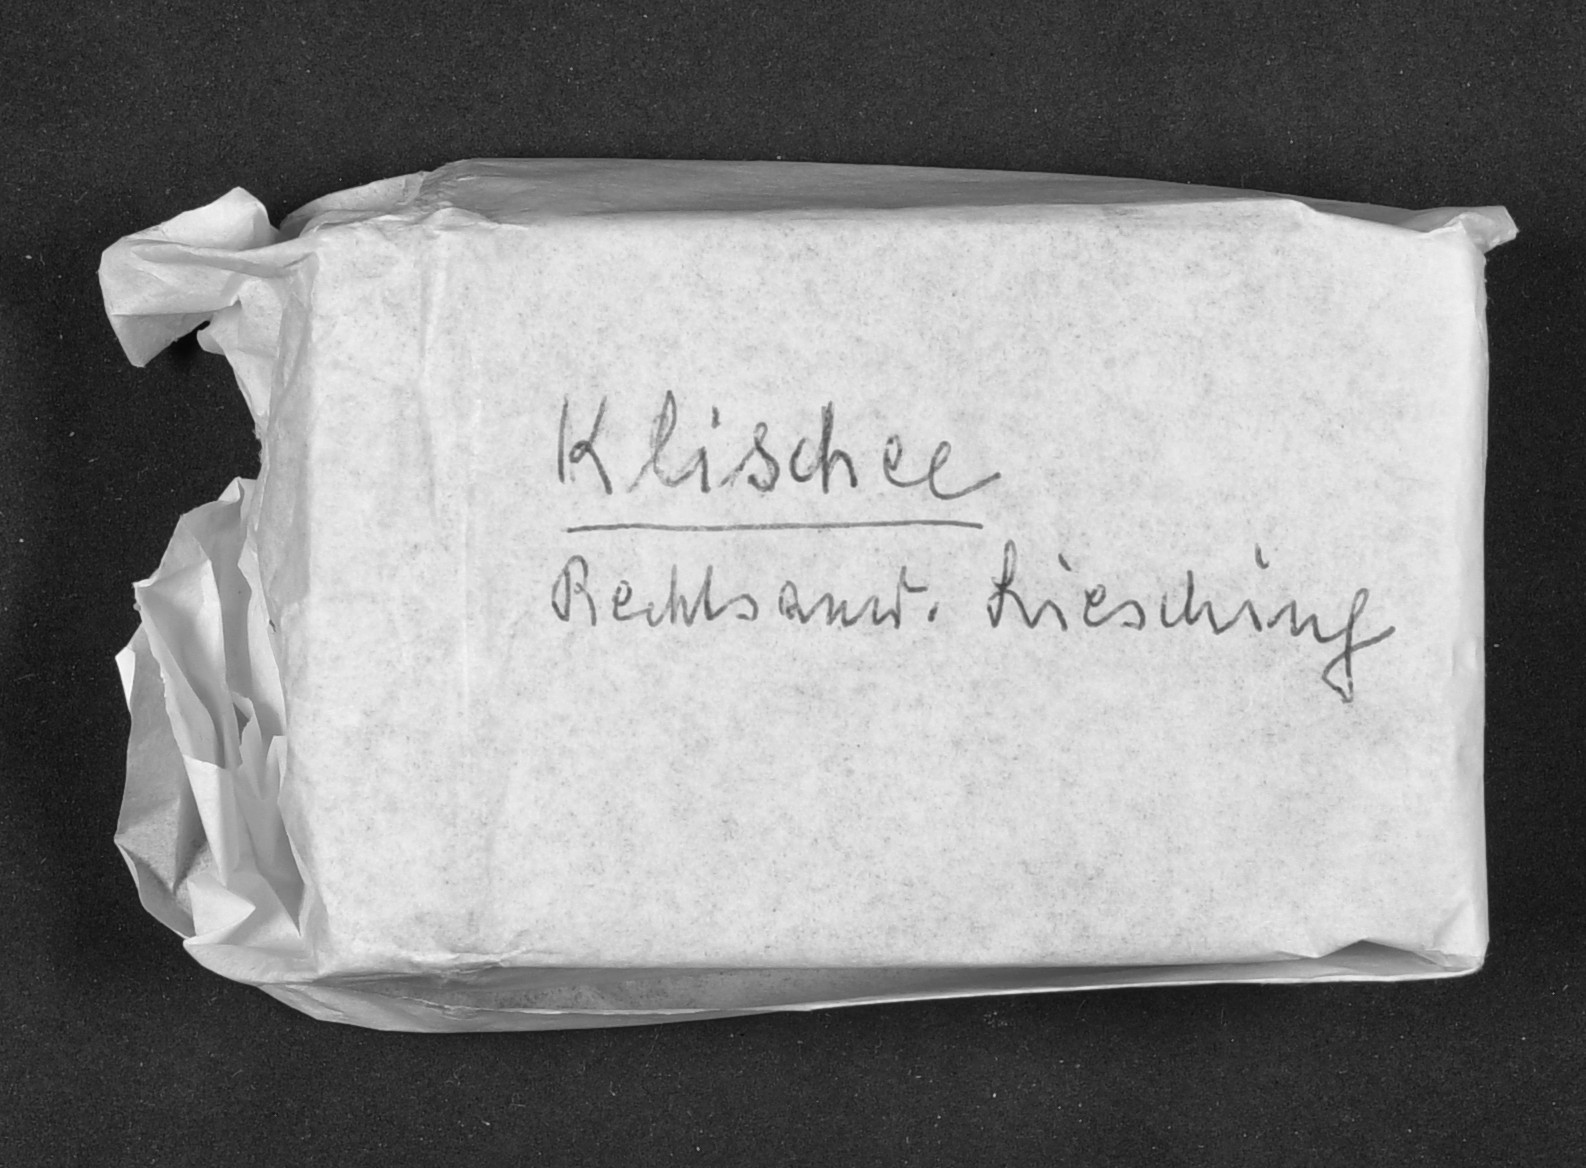 Klischee
Rechtsanw. Liesching